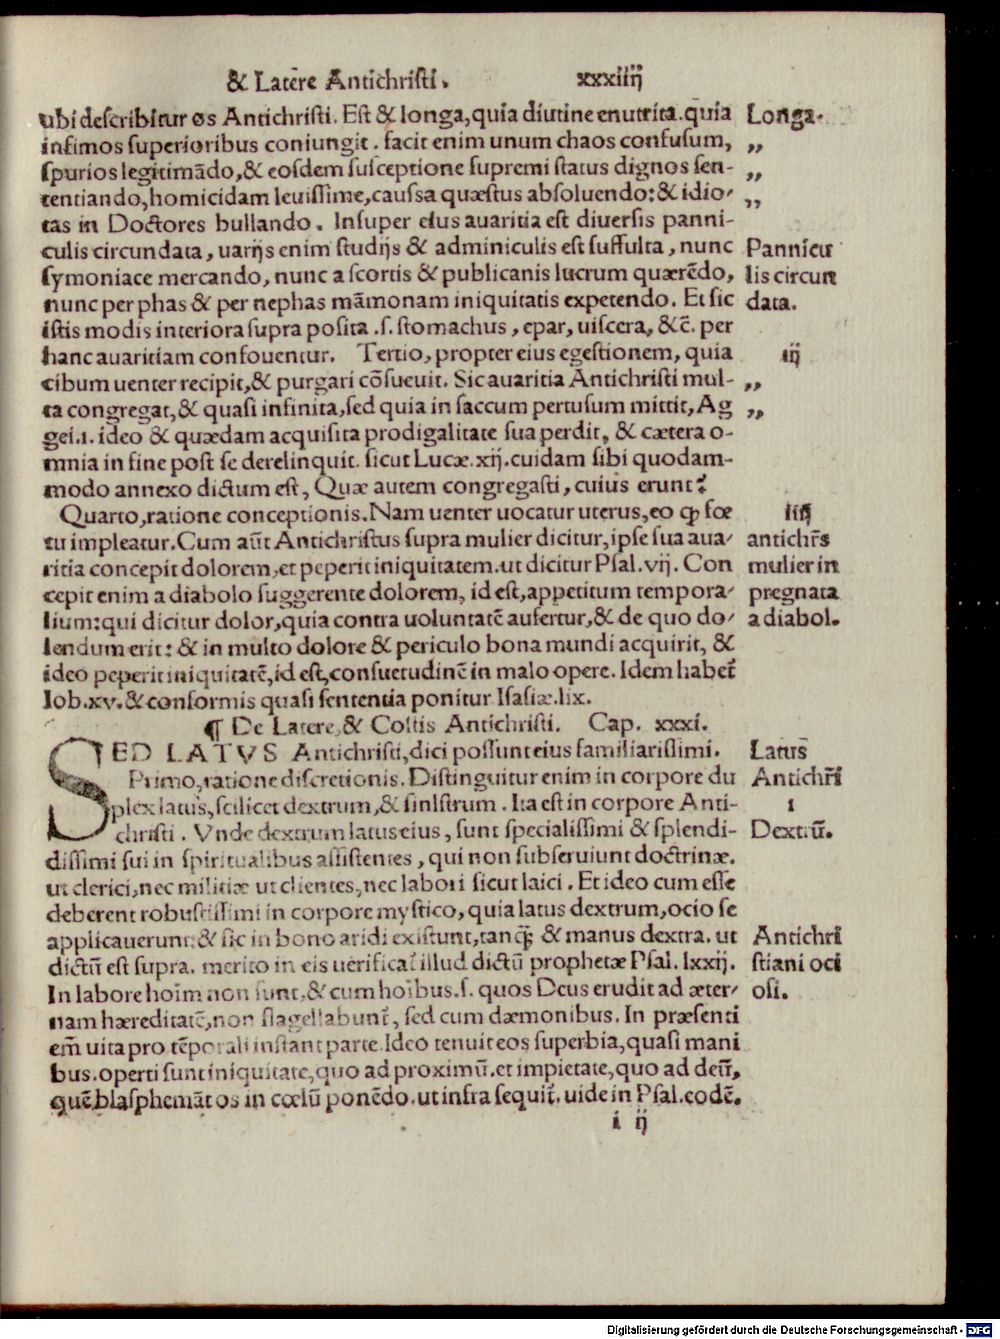 & Latēre Antichriſti. xxxiiij
ubi deſcribitur os Antichriſti. Eſt & longa, quia diutine enutrita. quia Longa.
infimos ſuperioribus coniungit. facit enim unum chaos confuſum, „
ſpurios legitimādo, & eoſdem ſuſceptione ſupremi ſtatus dignos ſen- „
tentiando, homicidam leuiſſime, cauſſa quæſtus abſoluendo: & idio- „
tas in Doctores bullando. Inſuper eius auaritia eſt diuerſis panni-
culis circundata, uarijs enim ſtudijs & adminiculis eſt ſuffulta, nunc Pannicu
ſymoniace mercando, nunc a ſcortis & publicanis lucrum quærēdo, lis circun
nunc per phas & per nephas māmonam iniquitatis expetendo. Et ſic data.
iſtis modis interiora ſupra poſita .ſ. ſtomachus, epar, uiſcera, &c̄. per
hanc auaritiam confouentur. Tertio, propter eius egeſtionem, quia iij
cibum uenter recipit, & purgari cōſueuit. Sic auaritia Antichriſti mul- „
ta congregat, & quaſi infinita, ſed quia in ſaccum pertuſum mittit, Ag „
gei.1. ideo & quædam acquiſita prodigalitate ſua perdit, & cætera o-
mnia in fine poſt ſe derelinquit. ſicut Lucæ.xij. cuidam ſibi quodam-
modo annexo dictum eſt, Quæ autem congregaſti, cuius erunt?
Quarto, ratione conceptionis. Nam uenter uocatur uterus, eo ꝙ fœ iiij
tu impleatur. Cum aūt Antichriſtus ſupra mulier dicitur, ipſe ſua aua- antichr̄s
ritia concepit dolorem, et peperit iniquitatem. ut dicitur Pſal. vij. Con mulier in
cepit enim a diabolo ſuggerente dolorem, id eſt, appetitum tempora- pregnata
lium: qui dicitur dolor, quia contra uoluntatē aufertur, & de quo do- a diabol.
lendum erit: & in multo dolore & periculo bona mundi acquirit, &
ideo peperit iniquitatē, id eſt, conſuetudinē in malo opere. Idem habet̄
Iob. xv. & conformis quaſi ſententia ponitur Iſaiæ. lix.
¶ De Latere, & Coſtis Antichriſti. Cap. xxxi.
SED LATVS Antichriſti, dici poſſunt eius familiariſſimi. Latus
Primo, ratione diſcretionis. Diſtinguitur enim in corpore du Antichr̄i
plex latus, ſcilicet dextrum, & ſiniſtrum. Ita eſt in corpore Anti- 1
chriſti. Vnde dextrum latus eius, ſunt ſpecialiſſimi & ſplendi- Dextrū.
diſſimi ſui in ſpiritualibus aſſiſtentes, qui non ſubſeruiunt doctrinæ.
ut clerici, nec militiæ ut clientes, nec labori ſicut laici. Et ideo cum eſſe
deberent robuſtiſſimi in corpore myſtico, quia latus dextrum, ocio ſe
applicauerunt: & ſic in bono aridi exiſtunt, tanꝙ̄ & manus dextra. ut Antichri
dictū eſt ſupra. merito in eis uerificat̄ illud dictū prophetæ Pſal. lxxij. ſtiani oci
In labore hoīm non ſunt, & cum hoībus .ſ. quos Deus erudit ad æter- oſi.
nam hæreditatē, non flagellabunt̄, ſed cum dæmonibus. In præſenti
em̄ uita pro tēporali inſtant parte. Ideo tenuit eos ſuperbia, quaſi mani
bus. operti ſunt iniquitate, quo ad proximū. et impietate, quo ad deū,
quē blaſphemāt os in cœlū ponēdo. ut infra ſequit̄. uide in Pſal. eodē.
i ij
Digitalisierung gefördert durch die Deutsche Forschungsgemeinschaft - DFG